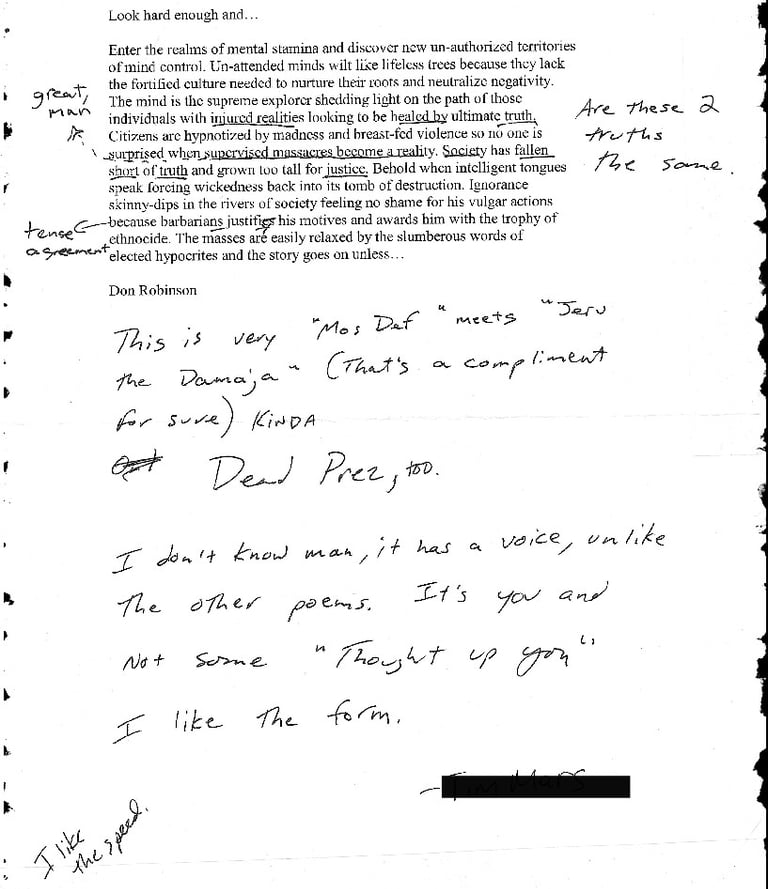 Look hard enough and…
Enter the realms of mental stamina and discover new un-authorized territories
of mind control. Un-attended minds wilt like lifeless trees because they lack
the fortified culture needed to nurture their roots and neutralize negativity.
The mind is the supreme explorer shedding light on the path of those
individuals with injured realities looking to be healed by ultimate truth.
Citizens are hypnotized by madness and breast-fed violence so no one is
surprised when supervised massacres become a reality. Society has fallen
short of truth and grown too tall for justice. Behold when intelligent tongues
speak forcing wickedness back into its tomb of destruction. Ignorance
skinny-dips in the rivers of society feeling no shame for his vulgar actions
because barbarians justifies his motives and awards him with the trophy of
ethnocide. The masses are easily relaxed by the slumberous words of
elected hypocrites and the story goes on unless…
Don Robinson
great,
man
Are these 2
truths
the same.
tense
agreement
This is very "Mos Def" meets "Jeru
the Damaja" (That's a compliment
for sure) KINDA
Dead Prez, too.
I don't know man, it has a voice, unlike
The other poems. It's you and
Not some "Thought up you"
I like The form.
I like
the speed.